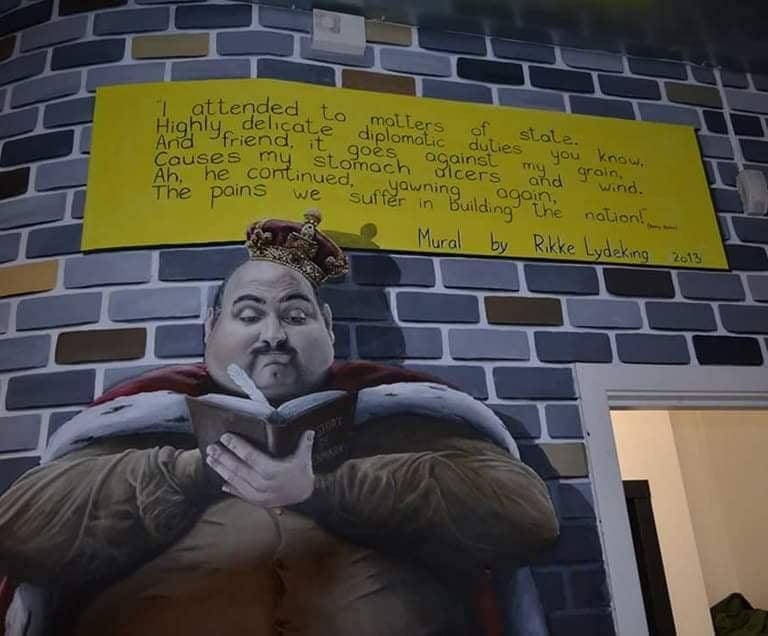 "I attended to matters of state.
Highly delicate diplomatic duties you know,
And friend, it goes against my grain,
Causes my stomach ulcers and wind.
Ah, he continued, yawning again,
The pains we suffer in building the nation!"
Mural by Rikke Lydeking 2013